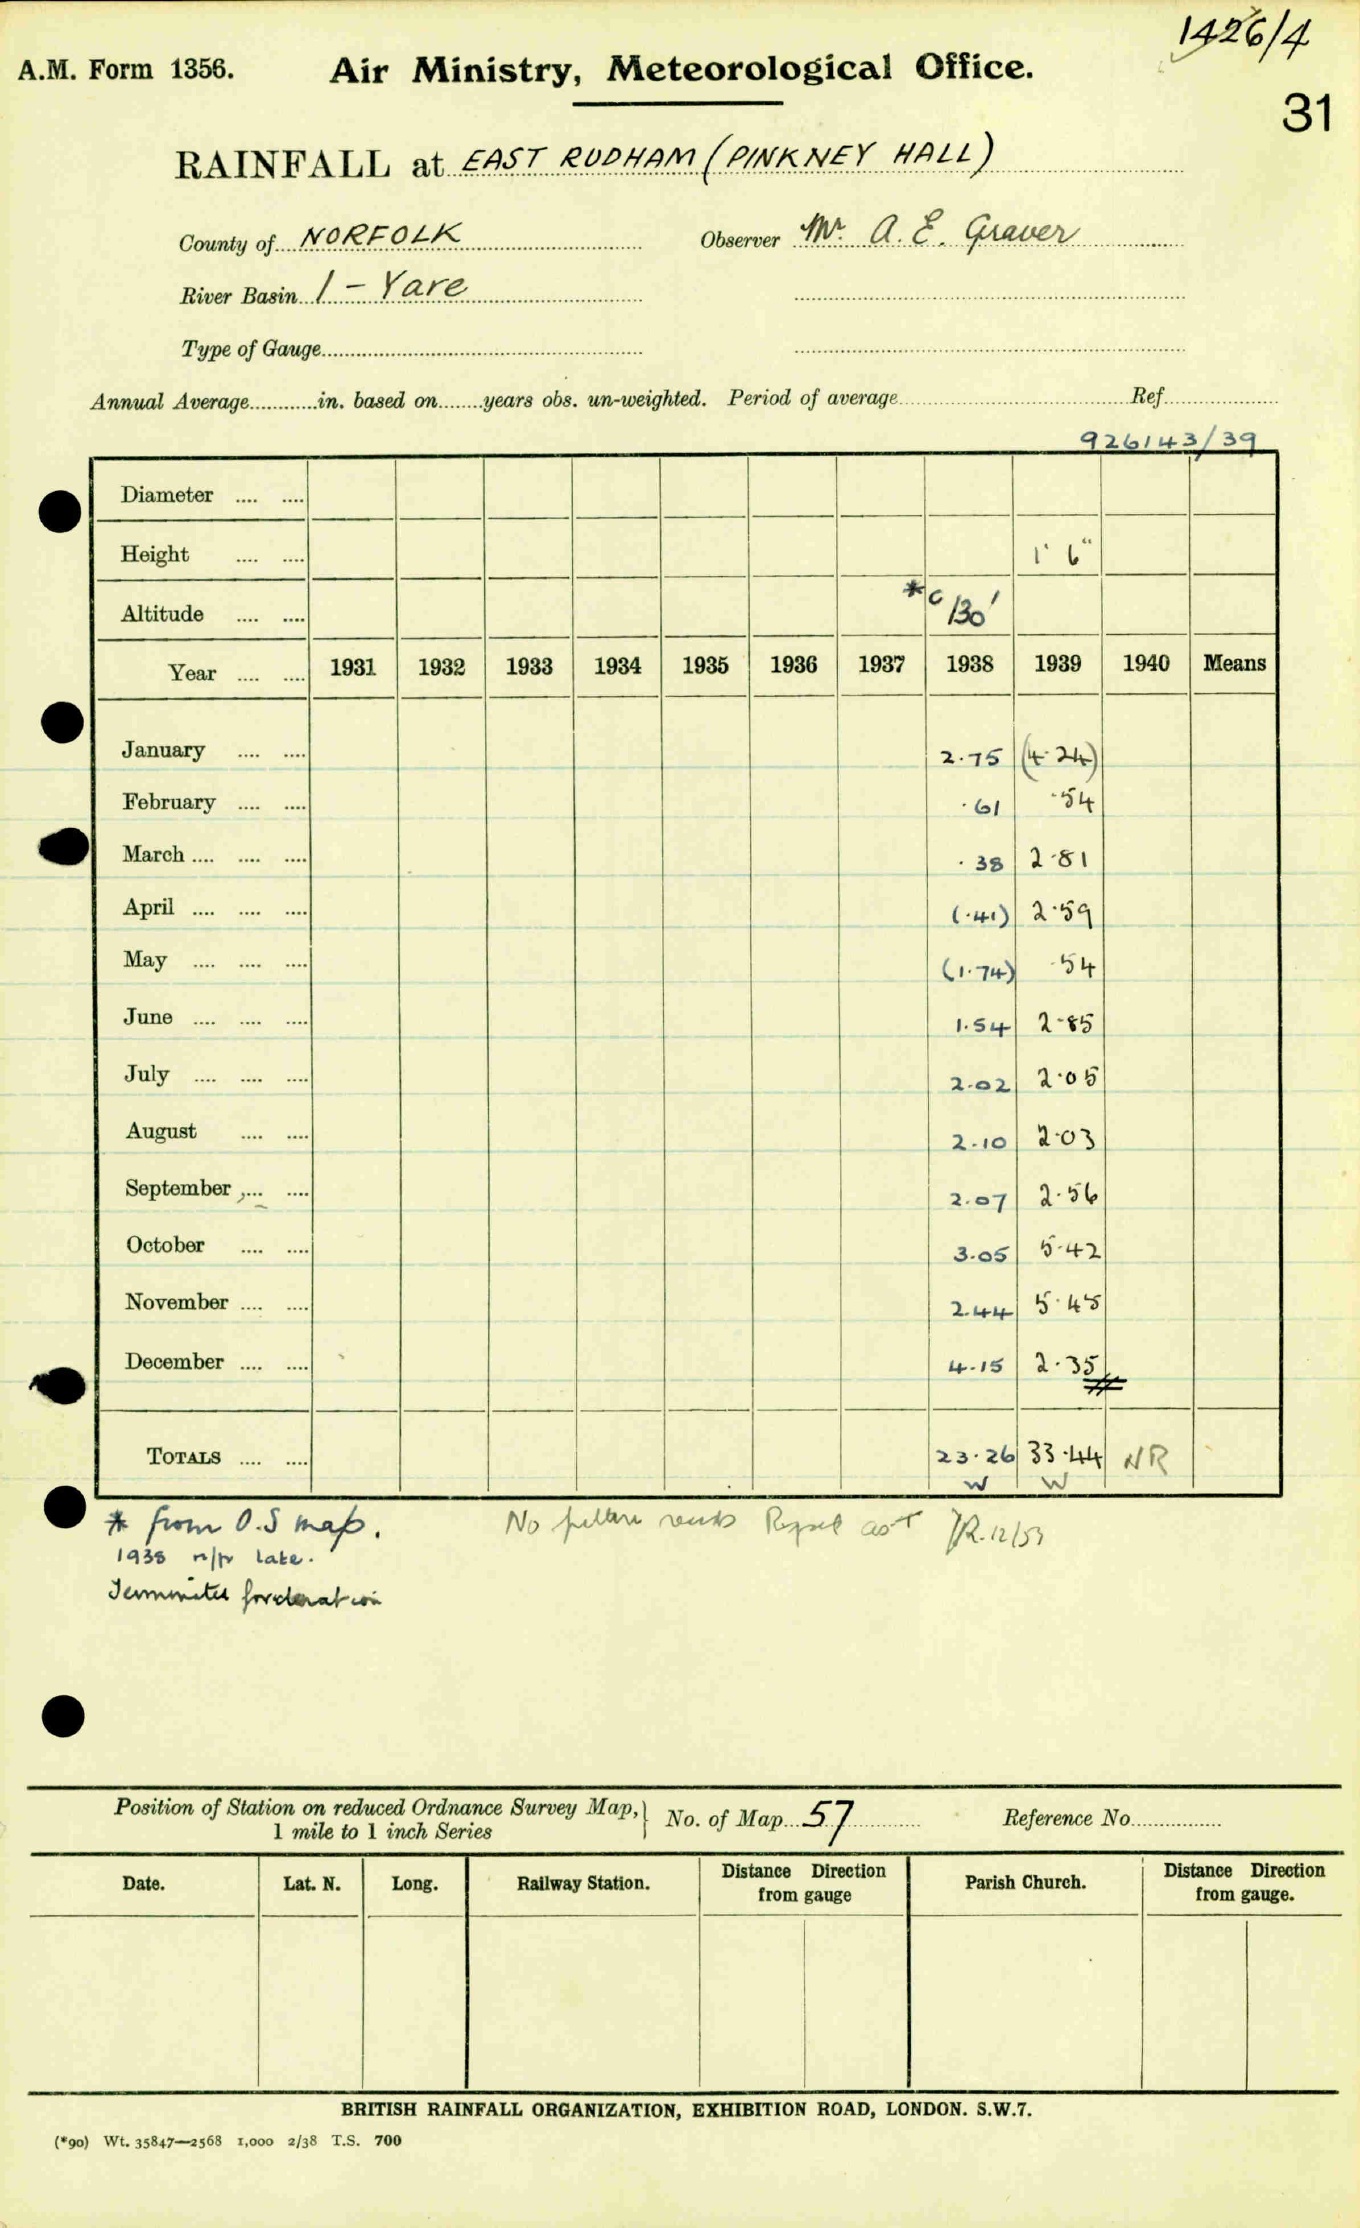 1426/4
A.M. Form 1356. Air Ministry, Meteorological Office.
31
RAINFALL at EAST RUDHAM (PINKNEY HALL)
County of NORFOLK Observer Mr. A. E. Graver
River Basin 1 - Yare
Type of Gauge
Annual Average in. based on years obs. un-weighted. Period of average Ref
926143/39
Diameter
Height 1' 6"
Altitude * c 130'
Year 1931 1932 1933 1934 1935 1936 1937 1938 1939 1940 Means
January 2.75 (4.24)
February .61 .54
March .38 2.81
April (.41) 2.59
May (1.74) .54
June 1.54 2.85
July 2.02 2.05
August 2.10 2.03
September 2.07 2.56
October 3.05 5.42
November 2.44 5.45
December 4.15 2.35
TOTALS 23.26 33.44 NR
W W
* from O.S map. No records JR. 12/53
1938 late.
Position of Station on reduced Ordnance Survey Map, No. of Map 57 Reference No.
1 mile to 1 inch Series
Date. Lat. N. Long. Railway Station. Distance Direction from gauge Parish Church. Distance Direction from gauge.
BRITISH RAINFALL ORGANIZATION, EXHIBITION ROAD, LONDON. S.W.7.
(*90) Wt. 35847—2568 1,000 2/38 T.S. 700